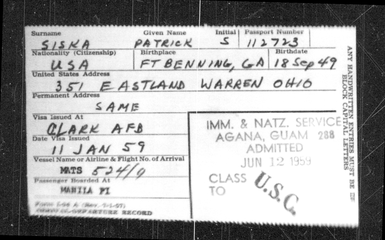 Surname Given Name Initial Passport Number
SISKA PATRICK S 112723
Nationality (Citizenship) Birthplace
USA FT BENNING, GA 18 Sep 49
United States Address
351 EASTLAND WARREN OHIO
Permanent Address
SAME
Visa Issued At
CLARK AFB
Date Visa Issued
11 JAN 59
Vessel Name or Airline & Flight No. of Arrival
MATS 524/0
Passenger Boarded At
MANILA PI
ARRIVAL-DEPARTURE RECORD
IMM. & NATZ. SERVICE
AGANA, GUAM 288
ADMITTED
JUN 12 1959
CLASS
TO
U.S.C.
ANY HANDWRITTEN ENTRIES MUST BE IN
BLOCK CAPITAL LETTERS